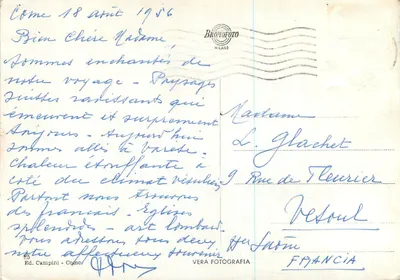 Come 18 août 1956
Bien Chère Madame,
Sommes enchantés de
notre voyage - Paysages
suisses ravissants qui
émeuvent et surprennent
toujours - Aujourd'hui
sommes allés à Varese -
Chaleur étouffante à
côté du climat vésulien
Partout nous trouvons
des français - Eglises
splendides - art lombard.
Vous adressons tous deux,
notre affectueux souvenir
Ed. Campiri - Como
BROMOFOTO
MILANO
Madame
L. Glachet
9 Rue de Fleurier
Vesoul
Hte Saône
FRANCIA
VERA FOTOGRAFIA